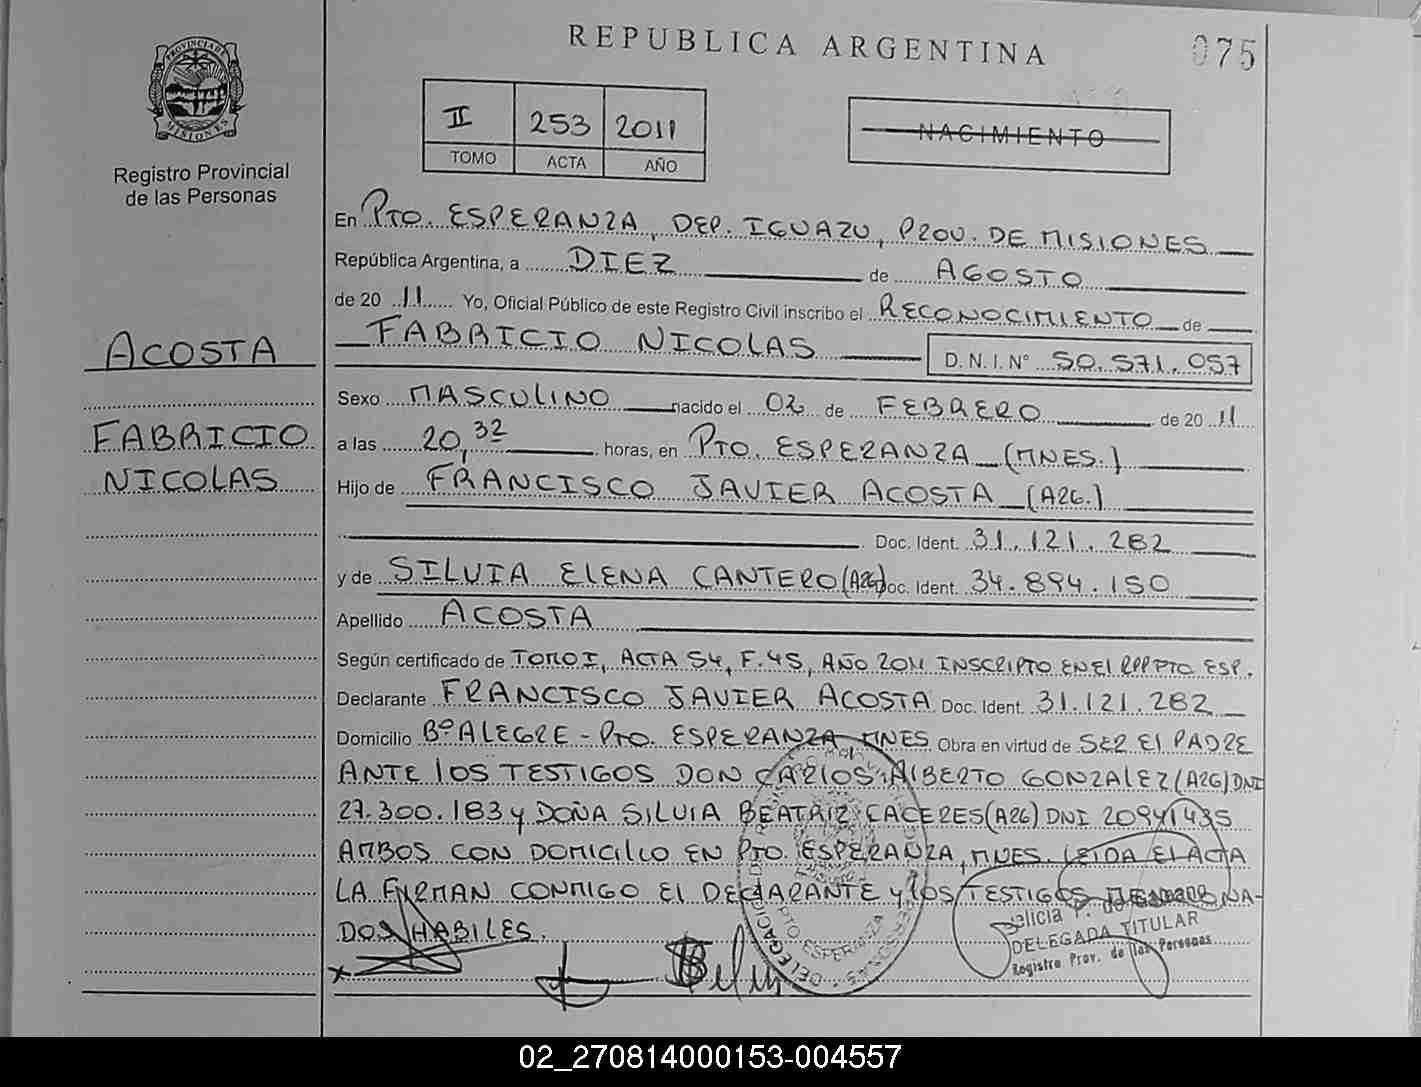 REPUBLICA ARGENTINA
075
PROVINCIA DE MISIONES
Registro Provincial
de las Personas
II 253 2011
TOMO ACTA AÑO
NACIMIENTO
ACOSTA
FABRICIO
NICOLAS
En PTO. ESPERANZA, DEP. IGUAZU, PROV. DE MISIONES
República Argentina, a DIEZ de AGOSTO
de 20 11 Yo, Oficial Público de este Registro Civil inscribo el RECONOCIMIENTO de
FABRICIO NICOLAS D.N.I. N° 50.571.057
Sexo MASCULINO nacido el 02 de FEBRERO de 20 11
a las 20,32 horas, en PTO. ESPERANZA (MNES.)
Hijo de FRANCISCO JAVIER ACOSTA (ARG.)
Doc. Ident. 31.121.282
y de SILVIA ELENA CANTERO (ARG) Doc. Ident. 34.894.150
Apellido ACOSTA
Según certificado de TOMO I, ACTA 54, F.45, AÑO 2011 INSCRIPTO EN El RPP PTO ESP.
Declarante FRANCISCO JAVIER ACOSTA Doc. Ident. 31.121.282
Domicilio Bº ALEGRE - PTO. ESPERANZA MNES. Obra en virtud de SER El PADRE
ANTE lOS TESTIGOS DON CARLOS AlBERTO GONZALEZ (ARG) DNI
27.300.183 y DOÑA SILVIA BEATRIZ CACERES (ARG) DNI 20941435
AMBOS CON DOMICILIO EN PTO. ESPERANZA, MNES. LEIDA El ACTA
LA FIRMAN CONMIGO El DEClARANTE y lOS TESTIGOS
DOS HABILES.
DELEGACION PTO ESPERANZA
DELEGADA TITULAR
Registro Prov. de las Personas
02_270814000153-004557